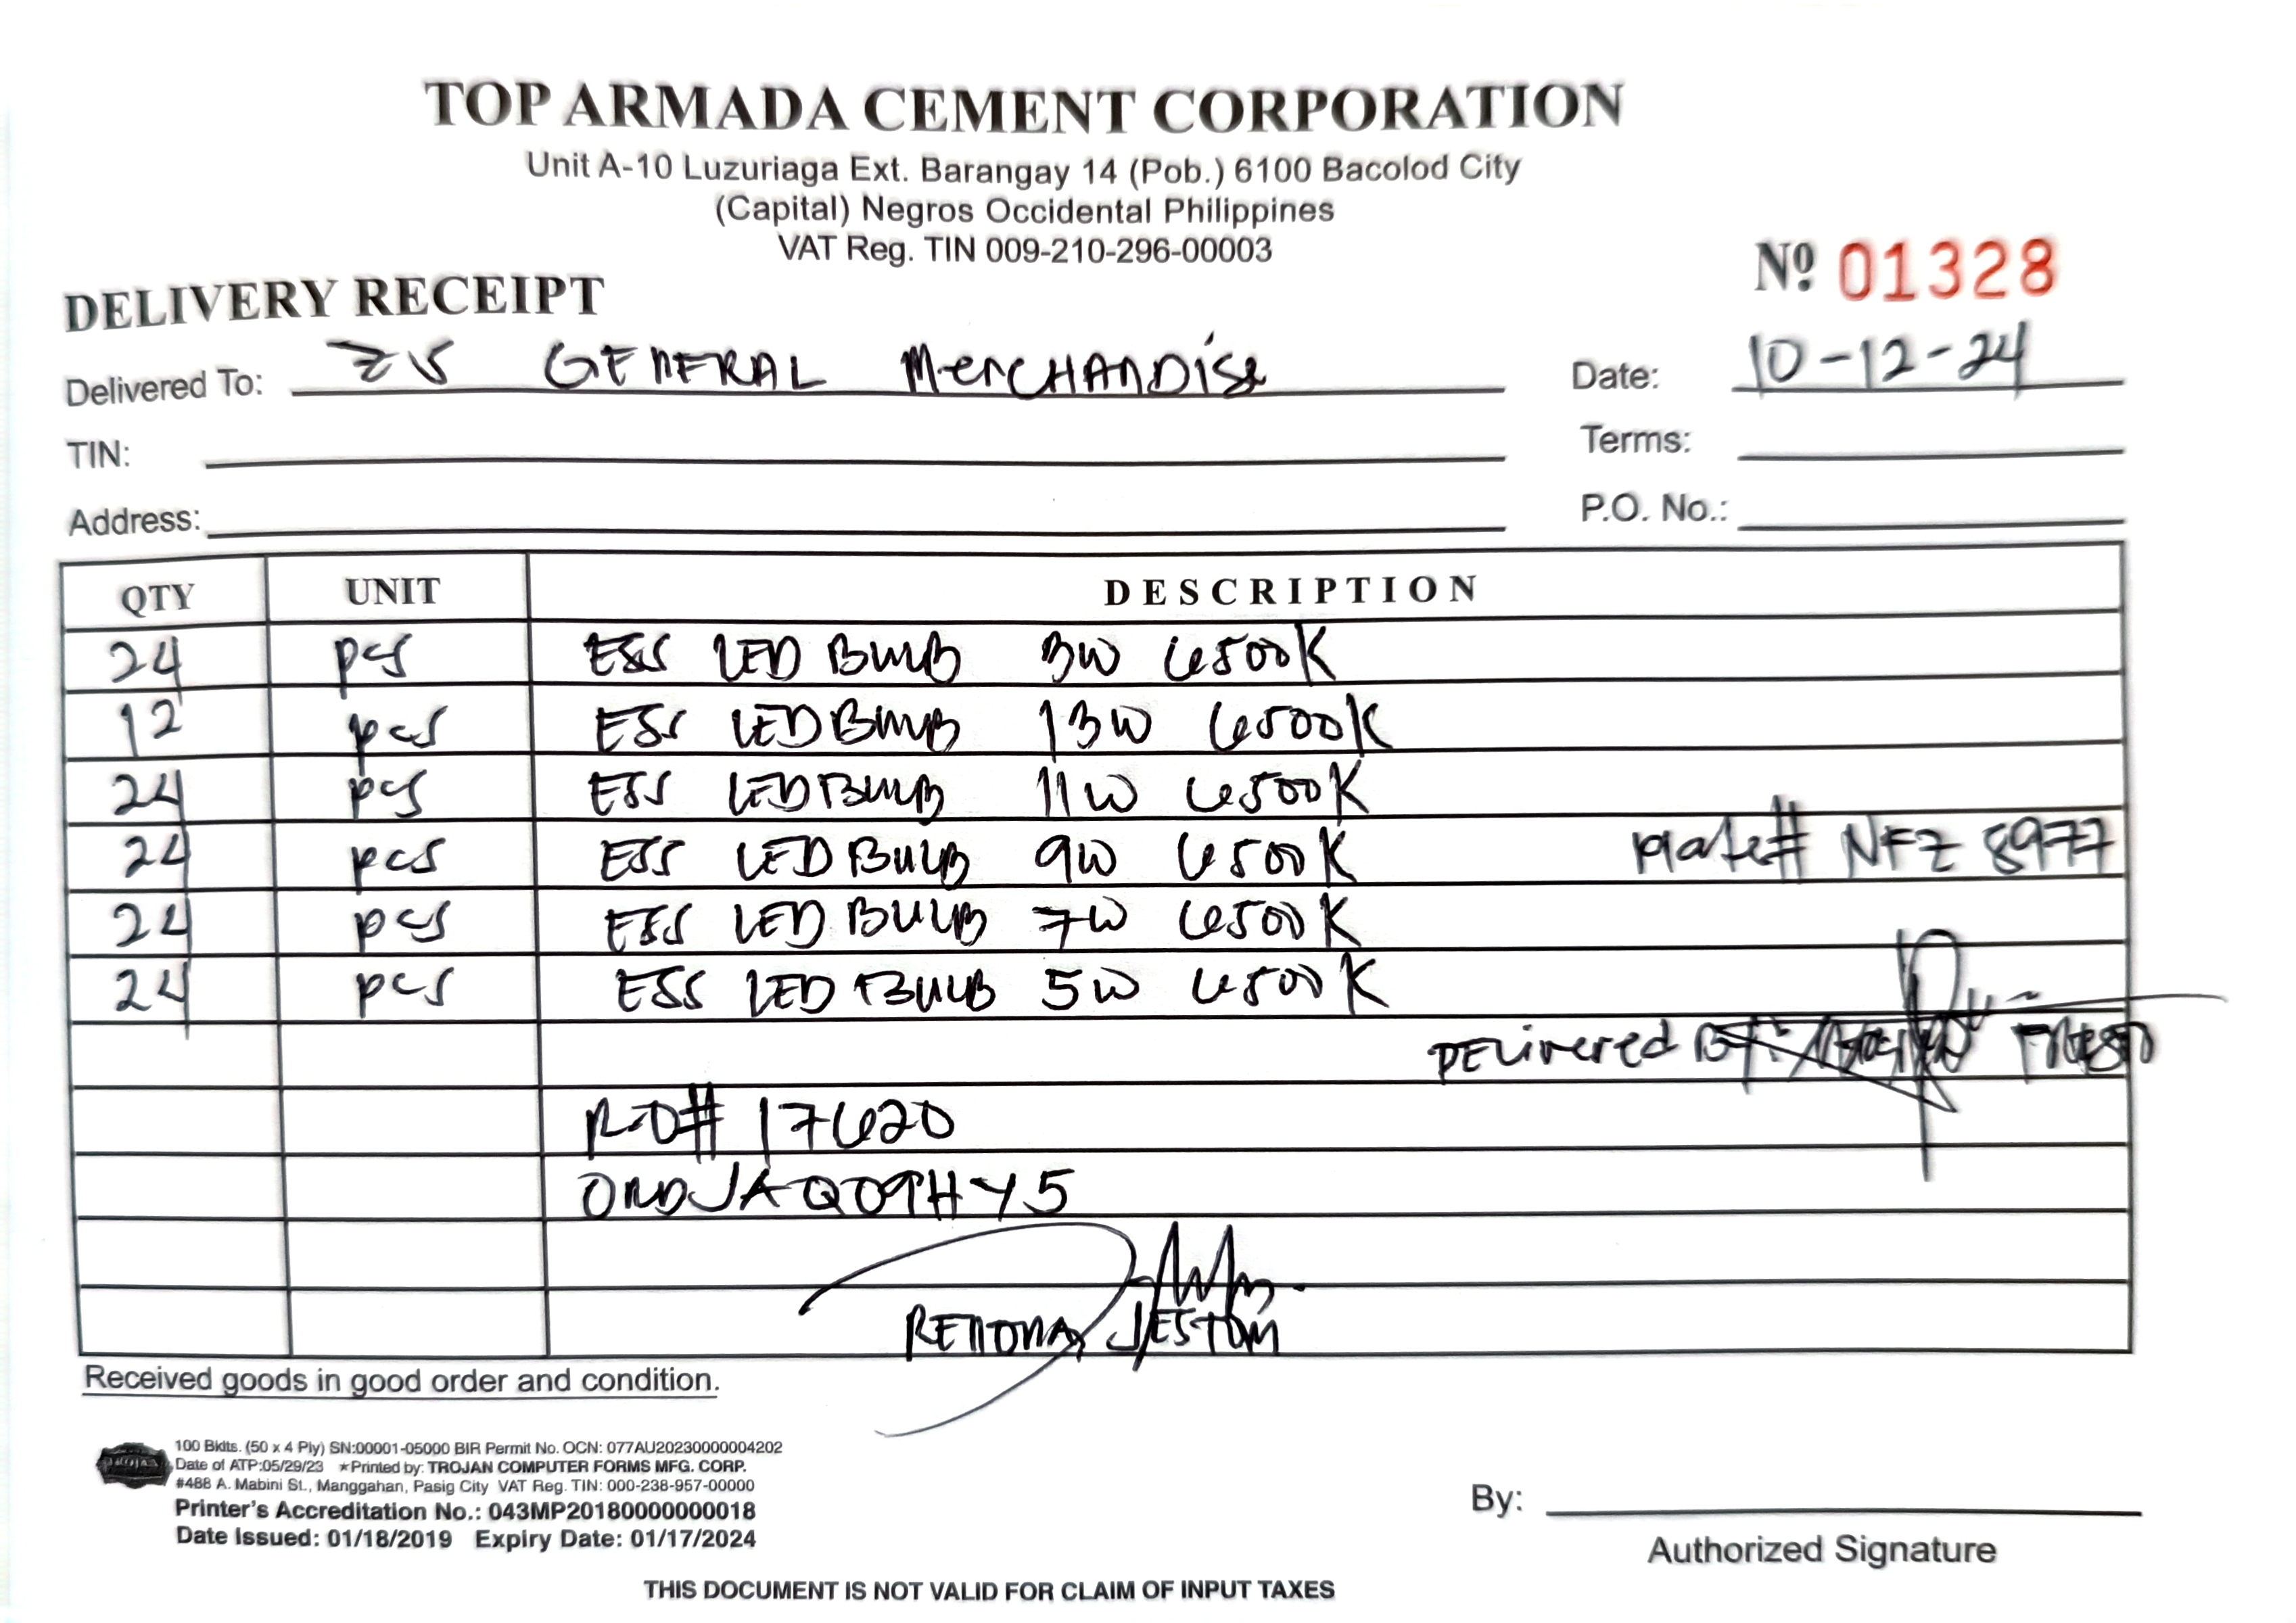 TOP ARMADA CEMENT CORPORATION
Unit A-10 Luzuriaga Ext. Barangay 14 (Pob.) 6100 Bacolod City
(Capital) Negros Occidental Philippines
VAT Reg. TIN 009-210-296-00003
No 01328
DELIVERY RECEIPT
Delivered To: ZV GENERAL MerCHANDise
Date: 10-12-24
TIN:
Terms:
Address:
P.O. No.:
QTY UNIT DESCRIPTION
24 pcs ESS LED BULB 3W 6500K
12 pcs ESS LED BULB 13W 6500K
24 pcs ESS LED BULB 11W 6500K
24 pcs ESS LED BULB 9W 6500K plate# NFZ 8977
24 pcs ESS LED BULB 7W 6500K
24 pcs ESS LED BULB 5W 6500K
DELivered BY:
17620
ORDJAQ09HY5
JESTONI
Received goods in good order and condition.
TROJAN
100 Bklts. (50 x 4 Ply) SN:00001-05000 BIR Permit No. OCN: 077AU20230000004202
Date of ATP:05/29/23 ★Printed by: TROJAN COMPUTER FORMS MFG. CORP.
#488 A. Mabini St., Manggahan, Pasig City VAT Reg. TIN: 000-238-957-00000
Printer's Accreditation No.: 043MP20180000000018
Date Issued: 01/18/2019 Expiry Date: 01/17/2024
By:
Authorized Signature
THIS DOCUMENT IS NOT VALID FOR CLAIM OF INPUT TAXES